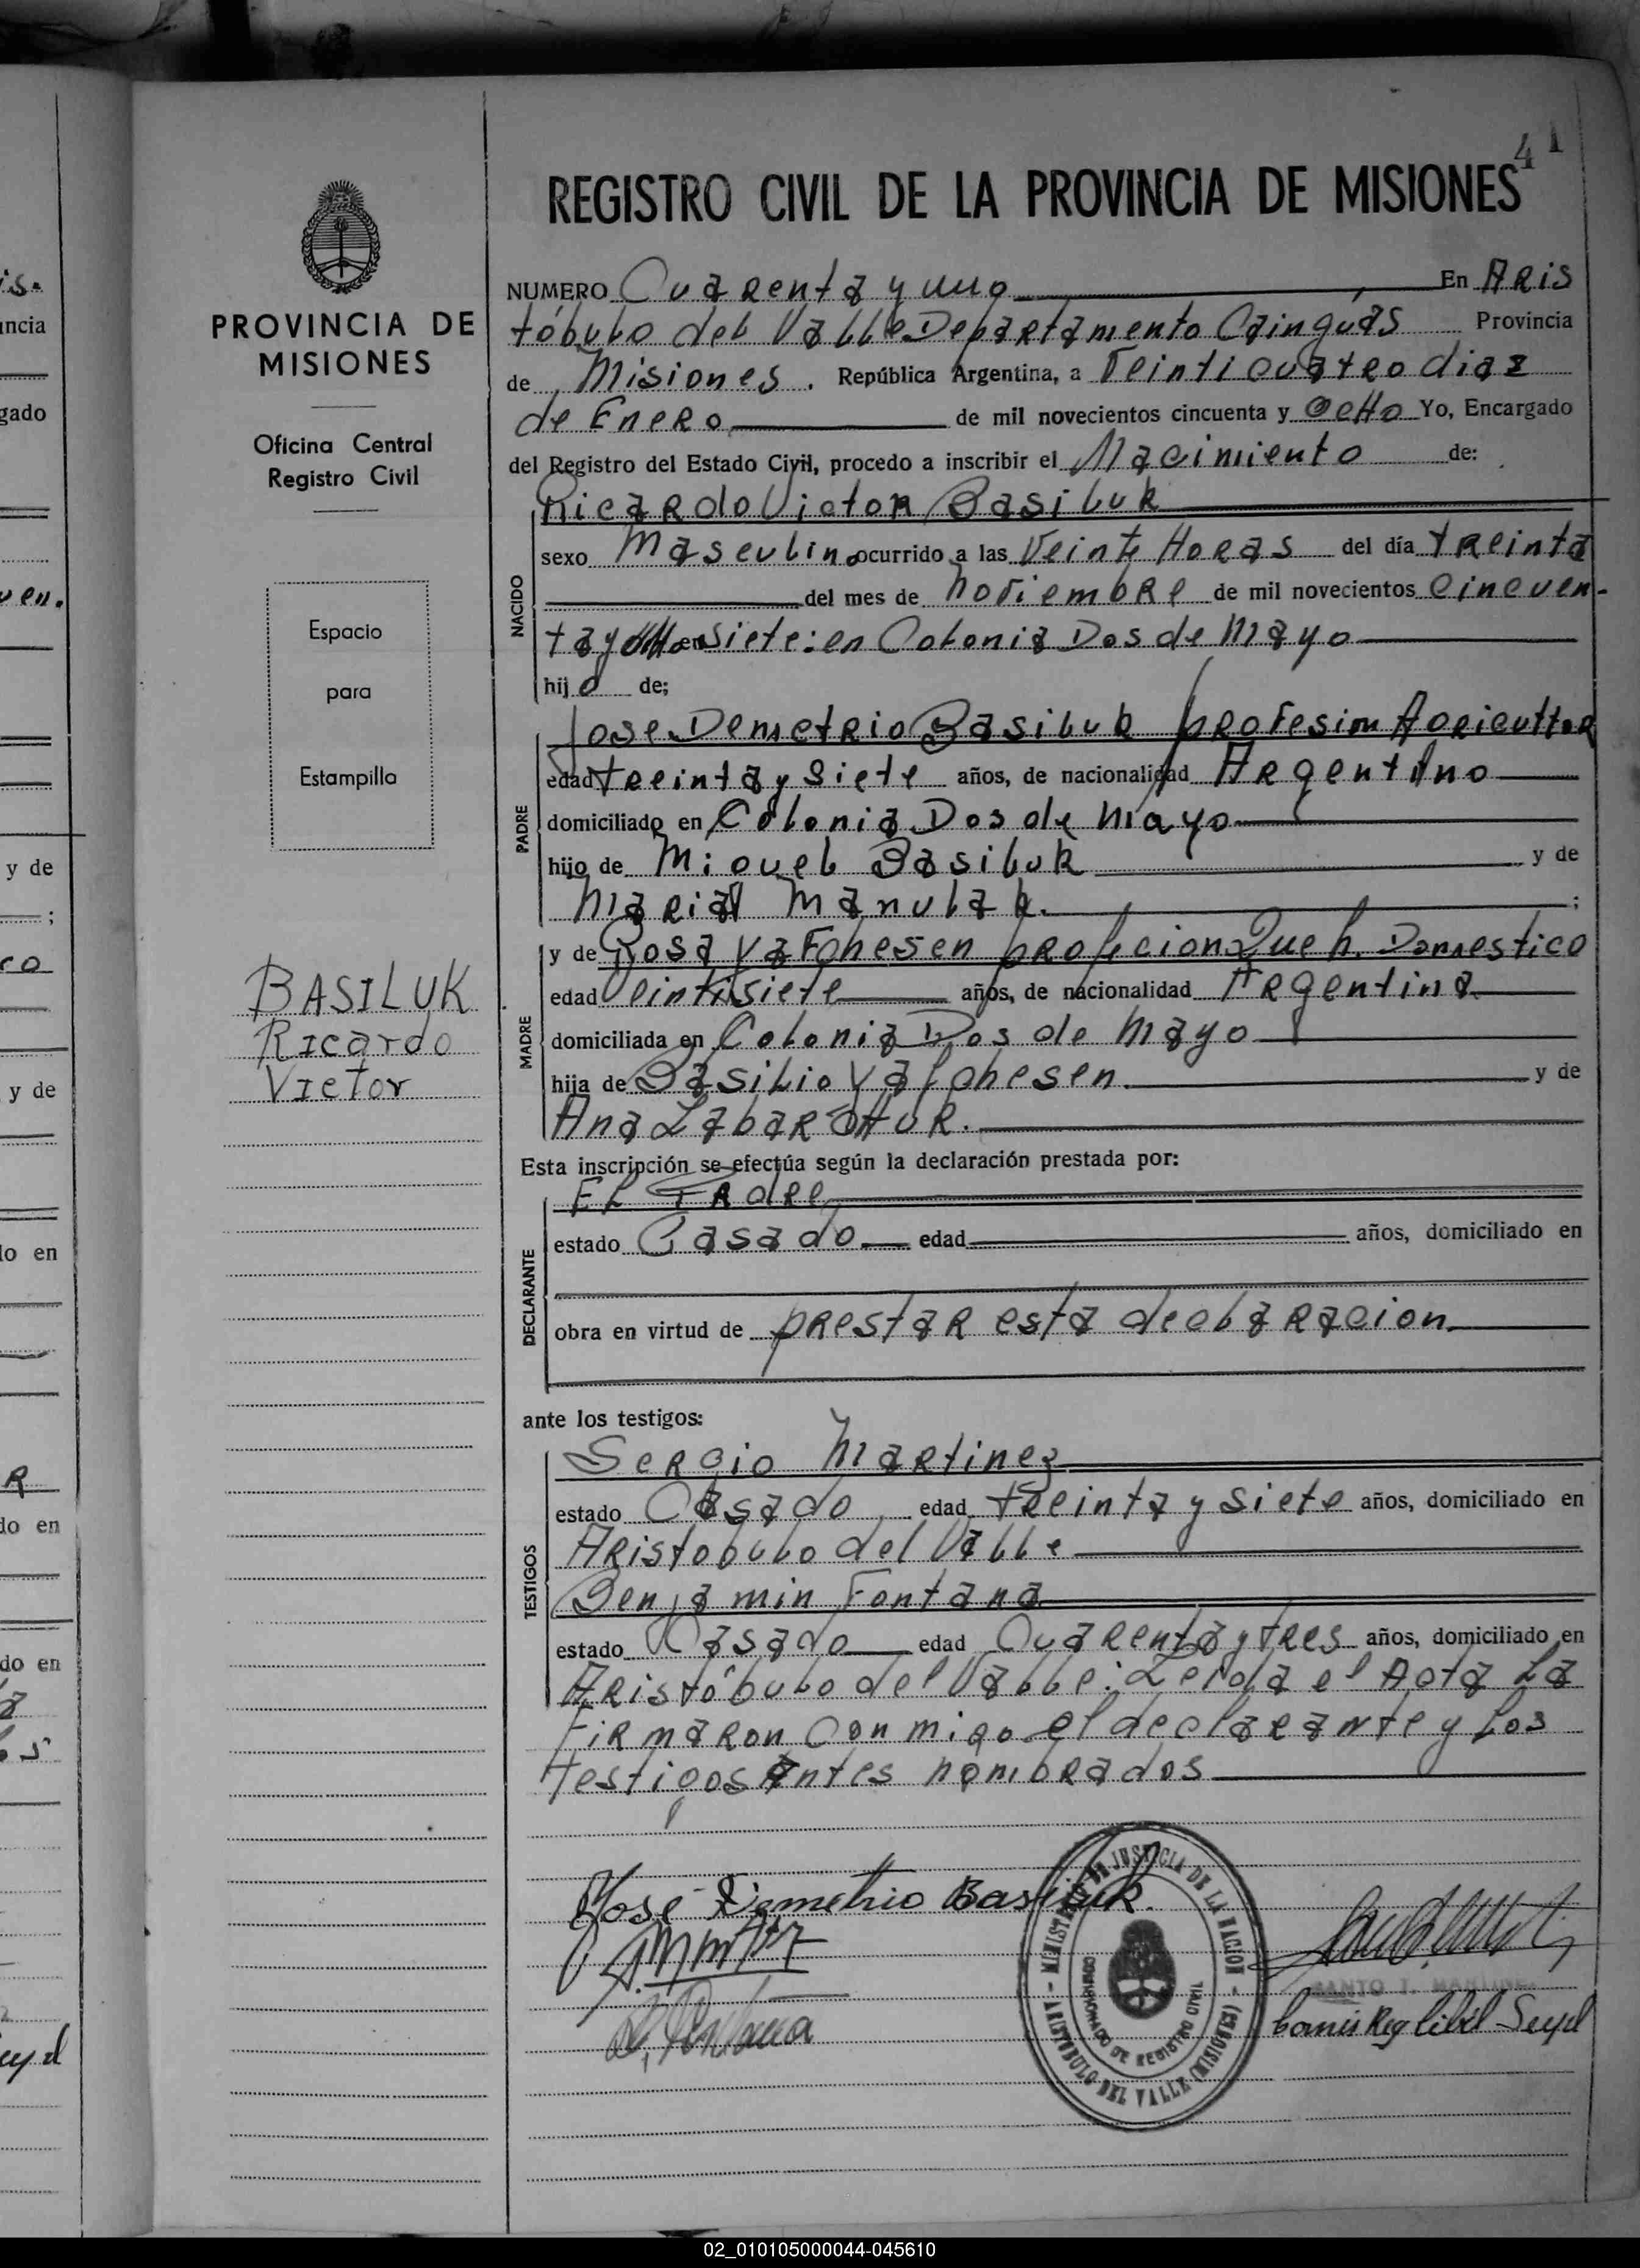 41
REGISTRO CIVIL DE LA PROVINCIA DE MISIONES
PROVINCIA DE
MISIONES
Oficina Central
Registro Civil
Espacio
para
Estampilla
BASILUK
Ricardo
Victor
NUMERO Cuarenta y uno En Aris
tóbulo del Valle Departamento Cainguás Provincia
de Misiones. República Argentina, a Veinticuatro diaz
de Enero de mil novecientos cincuenta y ocho Yo, Encargado
del Registro del Estado Civil, procedo a inscribir el Nacimiento de:
Ricardo Victor Basiluk
NACIDO
sexo Masculino ocurrido a las Veinte Horas del día treinta
del mes de noviembre de mil novecientos cincuen-
ta y en siete: en Colonia Dos de Mayo
hijo de;
PADRE
Jose Demetrio Basiluk profesion Agricultor
edad treinta y siete años, de nacionalidad Argentino
domiciliado en Colonia Dos de Mayo
hijo de Miguel Basiluk y de
Maria Manulak. ;
MADRE
y de Rosa profecion Que h. Domestico
edad Veintisiete años, de nacionalidad Argentina
domiciliada en Colonia Dos de Mayo
hija de Basilio y de
Ana
Esta inscripción se efectúa según la declaración prestada por:
DECLARANTE
El Padre
estado Casado edad años, domiciliado en
obra en virtud de prestar esta declaracion
ante los testigos:
TESTIGOS
Sergio Martinez
estado Casado edad treinta y siete años, domiciliado en
Aristobulo del Valle
Benjamin Fontana
estado Casado edad Cuarenta y tres años, domiciliado en
Aristóbulo del Valle: Leida el Acta La
Firmaron Con migo el declarante y Los
testigos antes nombrados
Jose Demetrio Basiluk.
B. Fontana
MINISTERIO DE JUSTICIA DE LA NACION
ARISTOBULO DEL VALLE (MISIONES)
DE REGISTRO CIVIL
SANTO T. MARTINEZ
02_010105000044-045610